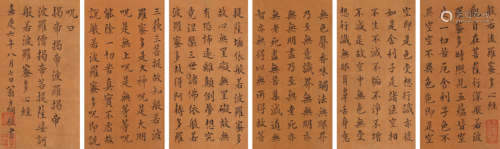 觀自在菩薩行深般若波
羅蜜多時照見五蘊皆空
度一切苦厄舍利子色不
異空空不異色色即是空
空即是色受想行識亦復
如是舍利子是諸法空相
不生不滅不垢不淨不增
不減是故空中無色無受
想行識無眼耳鼻舌身意
無色聲香味觸法無眼界
乃至無意識界無無明亦
無無明盡乃至無老死亦
無老死盡無苦集滅道
無智亦無得以無所得故
菩提薩埵依般若波羅蜜多
故心無罣礙無罣礙故無
有恐怖遠離顛倒夢想究
竟涅槃三世諸佛依般若
波羅蜜多故得阿耨多羅
三藐三菩提故知般若波
羅蜜多是大神呪是大明
呪是無上呪是無等等呪
能除一切苦真實不虛故
說般若波羅蜜多呪即說
呪曰
揭帝揭帝波羅揭帝
波羅僧揭帝菩提薩婆訶
般若波羅蜜多心經
嘉慶七年八月七日